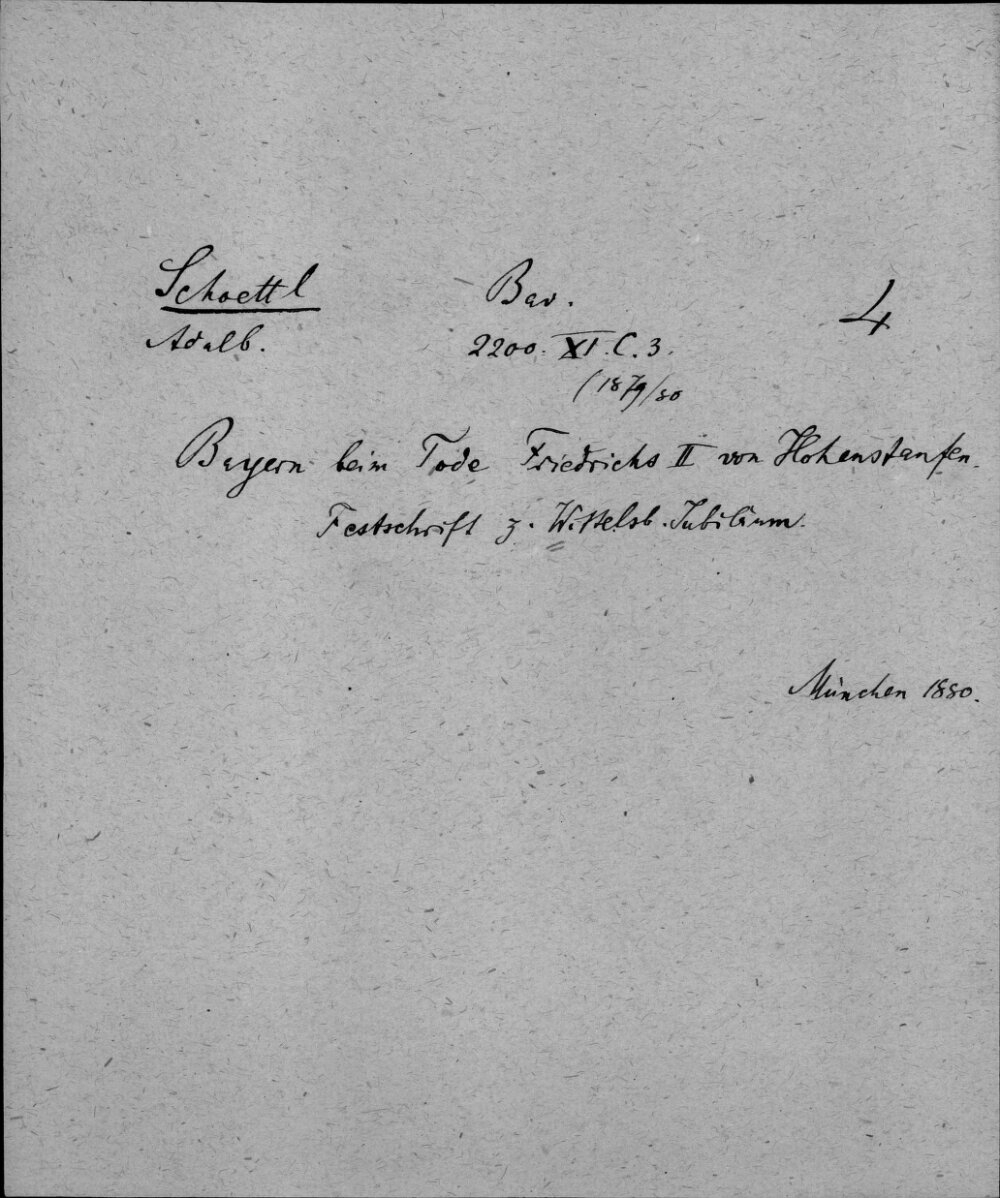 Schoettl Bav. 4
Adalb. 2200. XI. C. 3.
(1879/80
Bayern beim Tode Friedrichs II von Hohenstaufen.
Festschrift z. Wittelsb. Jubiläum.
München 1880.